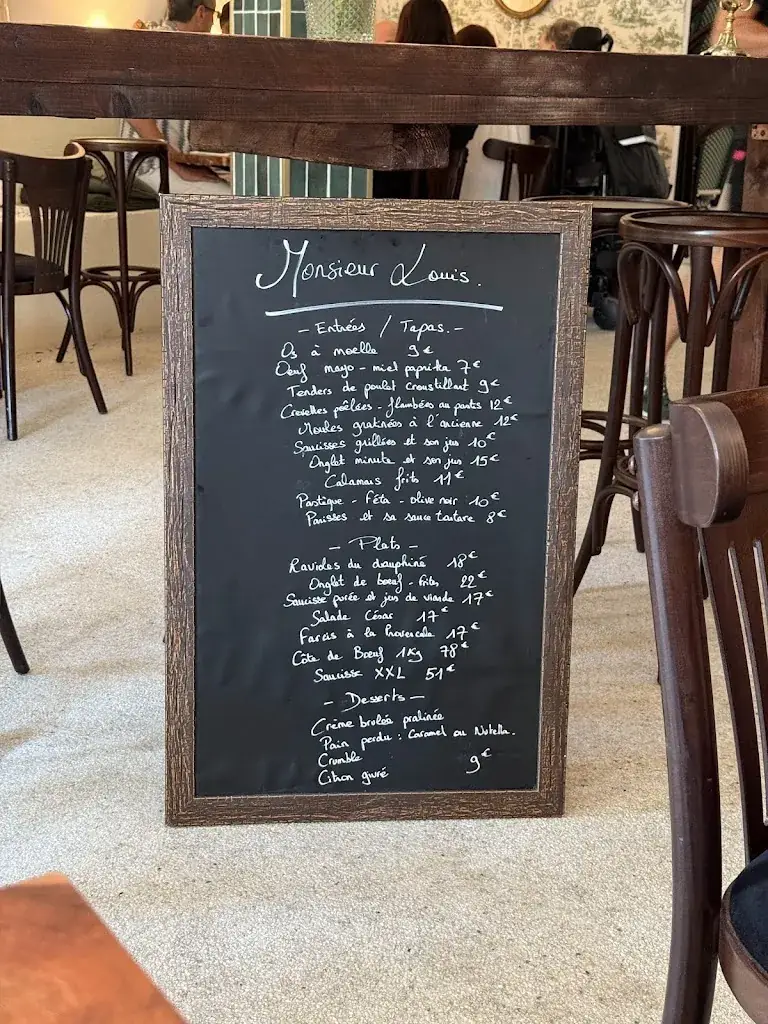 Monsieur Louis.
- Entrées / Tapas. -
Os à moelle 9€
Oeuf mayo - miel paprika 7€
Tenders de poulet croustillant 9€
Crevettes poêlées - flambées au pastis 12€
Moules gratinées à l'ancienne 12€
Saucisses grillées et son jus 10€
Onglet minute et son jus 15€
Calamars frits 11€
Pastèque - Féta - olive noir 10€
Panisses et sa sauce tartare 8€
- Plats -
Ravioles du dauphiné 18€
Onglet de boeuf - frites 22€
Saucisse purée et jus de viande 17€
Salade César 17€
Farcis à la Provençale 17€
Côte de Boeuf 1Kg 78€
Saucisse XXL 51€
- Desserts -
Crème brulée pralinée
Pain perdu : Caramel ou Nutella.
Crumble 9€
Citron givré